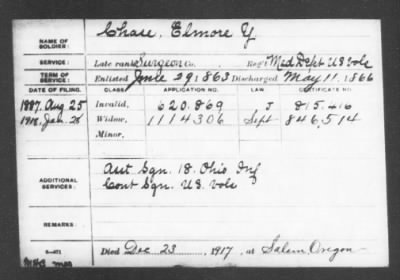 Chase, Elmore Y.
NAME OF SOLDIER:
SERVICE: Late rank Surgeon Co. Reg't Med Dept US Vols
TERM OF SERVICE: Enlisted June 29, 1863 Discharged May 11, 1866
DATE OF FILING. CLASS. APPLICATION NO. LAW. CERTIFICATE NO.
1887, Aug 25 Invalid, 620.869 J 815.416
1918, Jan. 28 Widow, 1114306 Sept 846,514
Minor,
ADDITIONAL SERVICES: Asst Sgn. 18. Ohio Inf
Cont Sgn. US. Vols
REMARKS:
Died Dec 23, 1917, at Salem Oregon